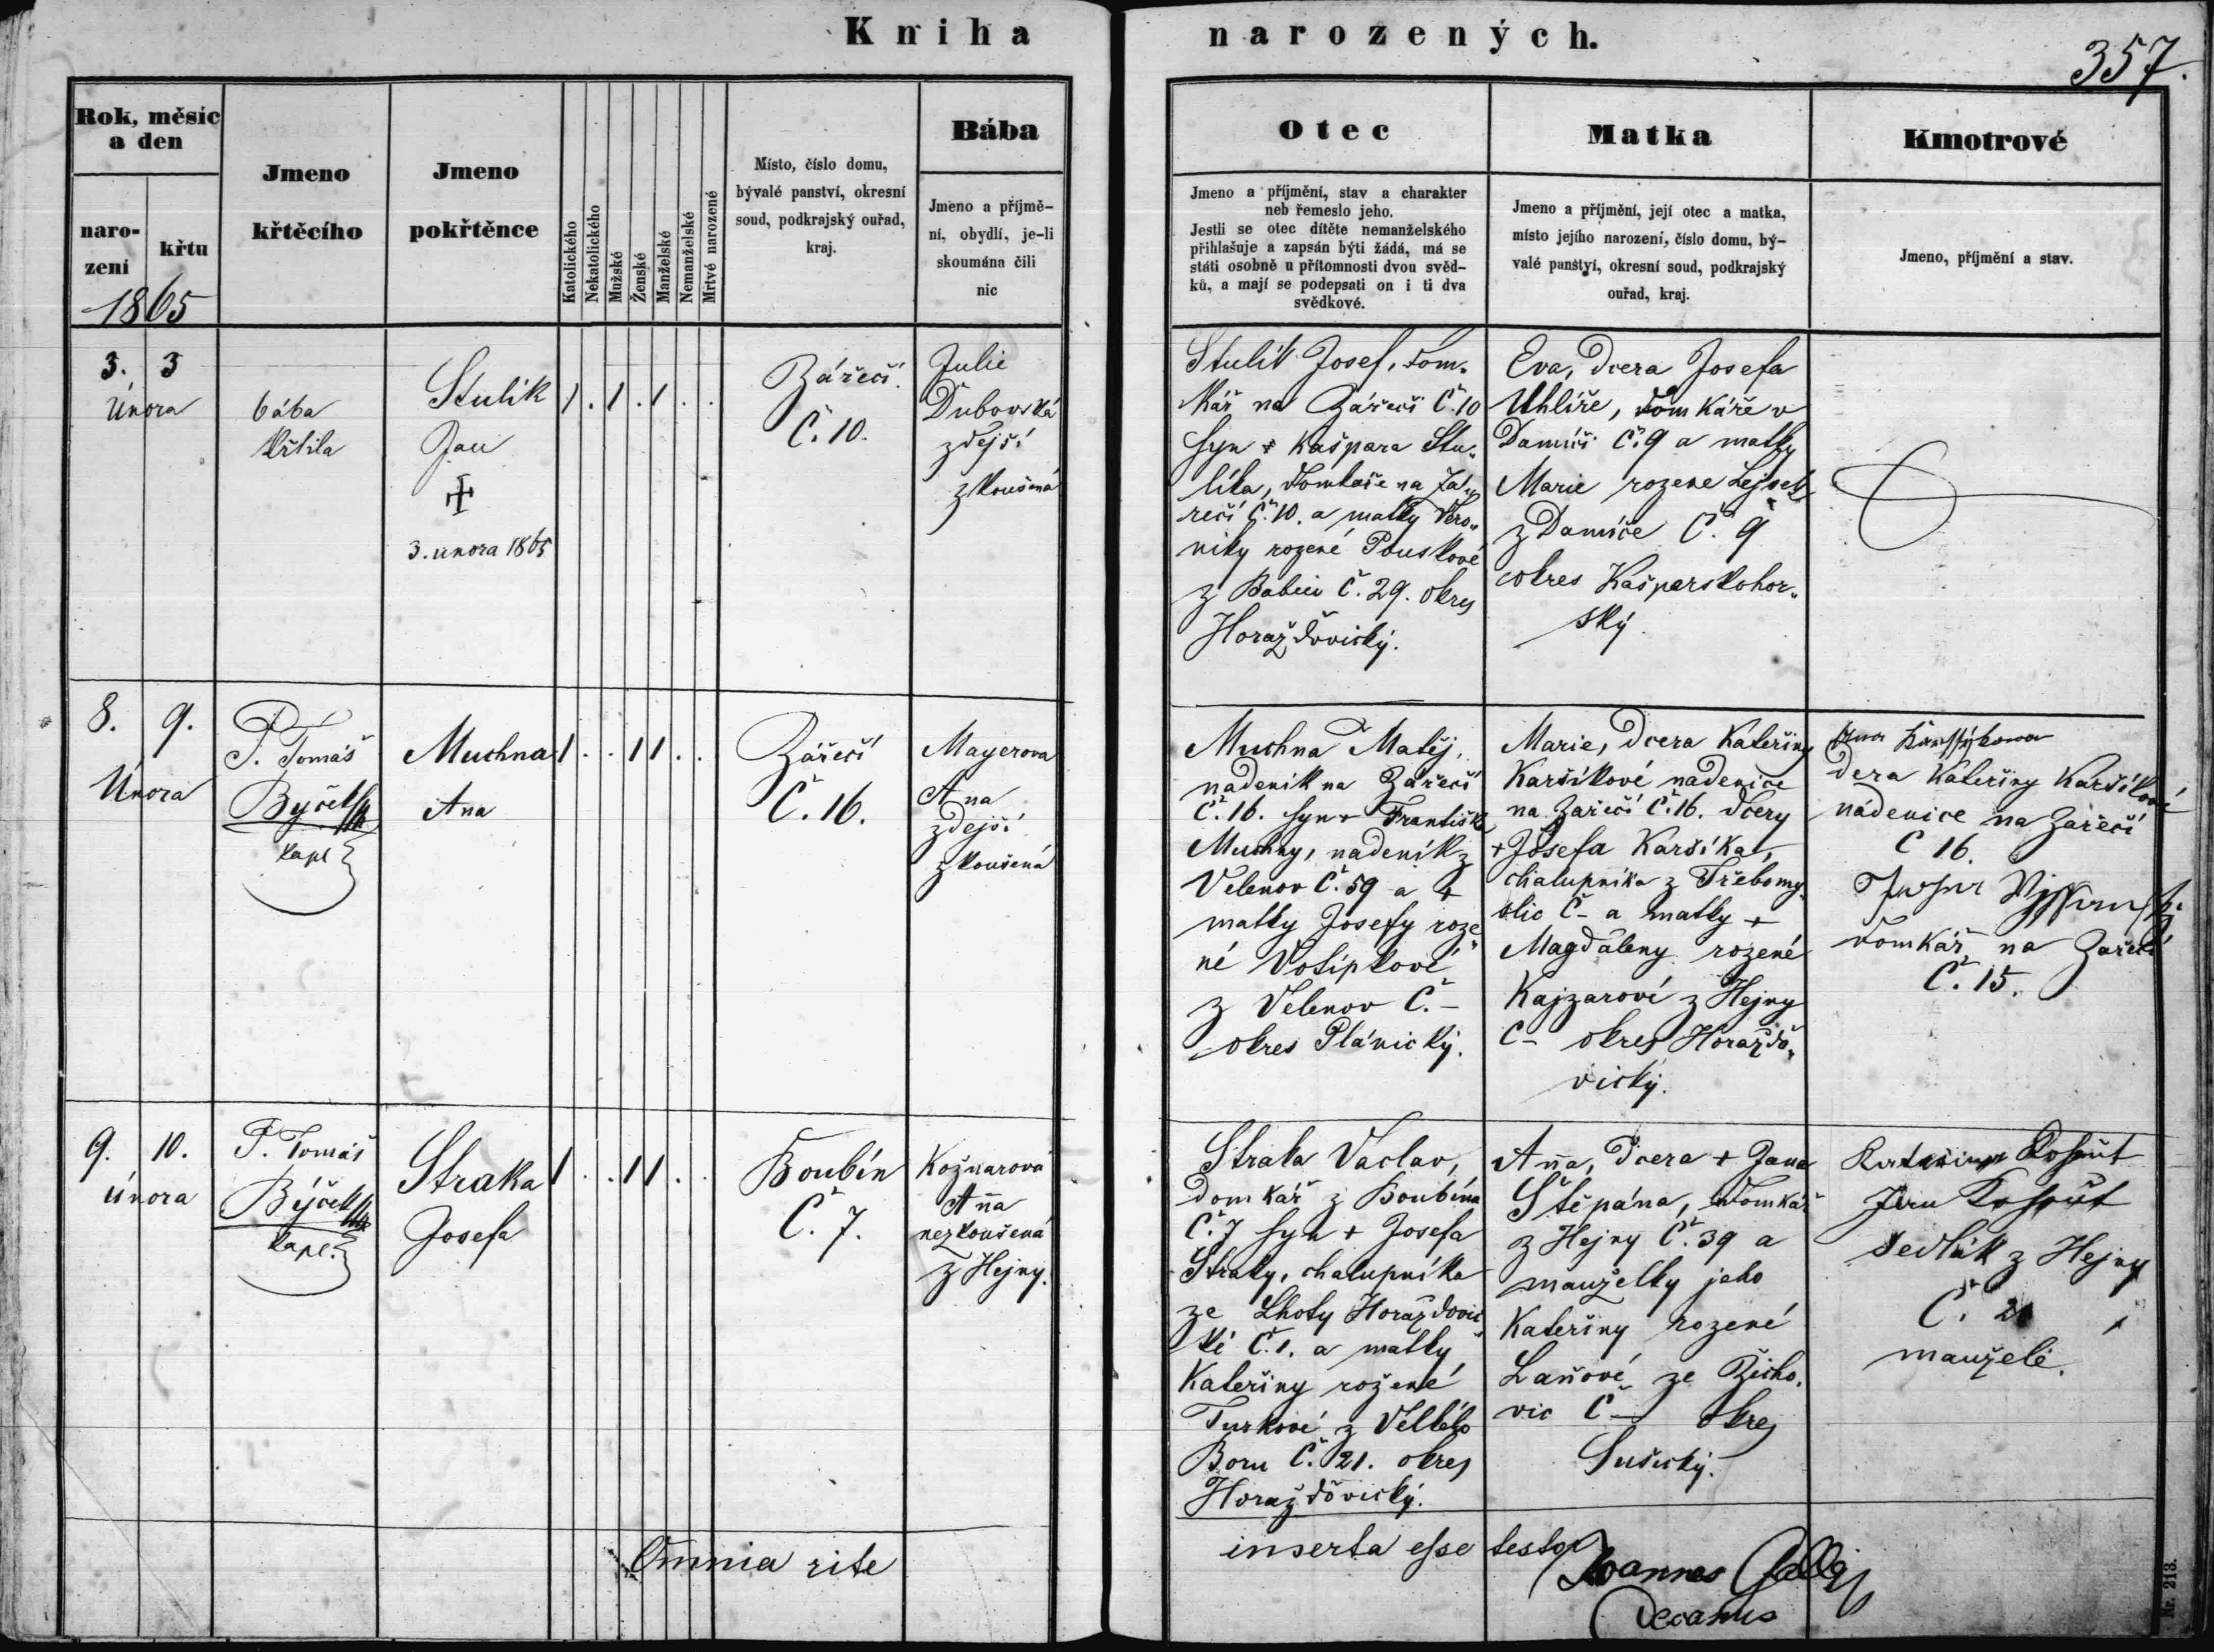 Kniha narozených.
357.
Rok, měsíc
a den
naro-
zení
křtu
1865
Jmeno
křtěcího
Jmeno
pokřtěnce
Katolického
Nekatolického
Mužské
Ženské
Manželské
Nemanželské
Mrtvé narozené
Místo, číslo domu,
bývalé panství, okresní
soud, podkrajský ouřad,
kraj.
Bába
Jmeno a příjmě-
ní, obydlí, je-li
skoumána čili
nic
Otec
Jmeno a příjmění, stav a charakter
neb řemeslo jeho.
Jestli se otec dítěte nemanželského
přihlašuje a zapsán býti žádá, má se
státi osobně u přítomnosti dvou svěd-
ků, a mají se podepsati on i ti dva
svědkové.
Matka
Jmeno a příjmění, její otec a matka,
místo jejího narození, číslo domu, bý-
valé panství, okresní soud, podkrajský
ouřad, kraj.
Kmotrové
Jmeno, příjmění a stav.
3. 3
Února
bába
křtila
Stulík
Jan
3. února 1865
1 . 1 . 1 . .
Zářečí
Č. 10.
Julie
Dubovská
zdejší
zkoušená
Stulík Josef, dom-
kář na Zářečí Č. 10
syn + Kašpara Stu-
líka, domkáře na Zá-
řečí Č. 10. a matky Vero-
niky rozené Pouskové
z Babin Č. 29. okres
Horažďovický.
Eva, dcera Josefa
Uhlíře, domkáře v
Damíči Č. 9 a matky
Marie rozene
z Damíče Č. 9
okres Kašperskohor-
ský.
8. 9.
Února
P. Tomáš
Býček
kapl
Muchna
Ana
1 . . 1 1 . .
Zářečí
Č. 16.
Mayerova
Ana
zdejší
zkoušená
Muchna Matěj,
nadeník na Zářečí
Č. 16. syn + Františka
Muchny, nadeník z
Velenov Č. 59 a +
matky Josefy roze-
né Votípkové
z Velenov Č. -
okres Plánický.
Marie, dcera Kateřiny
Karšíkové nadenice
na Zářečí Č. 16. dcery
+ Josefa Karšíka,
chalupníka z Třebomy-
slic Č - a matky +
Magdaleny rozené
Kajzaroví z Hejny
C - okres Horažďo-
vický.
dcera Kateřiny Karšíkové
nádenice na Zářečí
C 16.
domkář na Zářečí
Č. 15.
9. 10.
února
P. Tomáš
Býček
kapl.
Straka
Josefa
1 . . 1 1 . .
Boubín
Č. 7.
Kožnarová
Aña
nezkoušená
z Hejny.
Straka Vaclav,
domkář z Boubína
Č. 7 syn + Josefa
Straky, chalupníka
ze Lhoty Horažďovic
ké Č. 1. a matky
Kateřiny rožené
Turkové z Velkého
Boru Č. 21. okres
Horažďovický.
Aña, dcera + Jana
Štěpána, domkář
z Hejny Č. 39 a
manželky jeho
Kateřiny rozené
Laňové ze Žicho-
vic Č - okres
Sušický.
sedlák z Hejny
manželé.
Omnia rite inserta esse testor
Joannes
Decanus
Nr. 213.